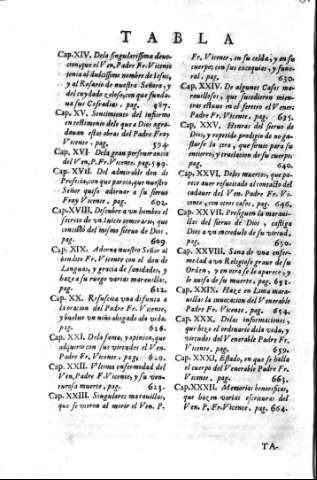 TABLA
Cap. XIV. De la singularissima devo-
cion, que el Ven. Padre Fr. Vicente
tenia al dulcissimo nombre de Iesus,
y al Rosario de nuestra Señora, y
del cuydado zeloso, con que fomenta-
va sus Cofradias. pag. 487.
Cap. XV. Sentimiento del infierno
en testimonio de lo que a Dios agra-
davan estas obras del Padre Fray
Vicente. pag. 594
Cap. XVI. De la gran perseverancia
del Ven. P. Fr. Vicente. pag. 599.
Cap. XVII. Del admirable don de
Profecia, con que parece, que nuestro
Señor quiso adornar a su siervo
Fray Vicente. pag. 602.
Cap. XVIII. Descubre a un hombre el
secreto de un juicio temerario, que
concibiò del mismo siervo de Dios.
pag. 609.
Cap. XIX. Adorna nuestro Señor al
bendito Fr. Vicente con el don de
Lenguas, y gracia de sanidades, y
haze a su ruego varias maravillas,
pag. 612.
Cap. XX. Resuscita una difunta a
la oracion del Padre Fr. Vicente,
y buelve un niño ahogado a la vida.
pag. 616.
Cap. XXI. De la fama, y opinion, que
adquirio con sus virtudes el Ven.
Padre Fr. Vicente. pag. 620.
Cap. XXII. Vltima enfermedad del
Ven. Padre F. Vicente, y su ven-
turosa muerte, pag. 623.
Cap. XXIII. Singulares maravillas,
que se vieron al morir el Ven. P.
Fr. Vicente, en su celda, y en su
cuerpo; con sus exequias, y fune-
ral. pag. 630.
Cap. XXIV. De algunas cosas ma-
ravillosas, que sucedieron mien-
tras estuvo en el feretro el Vener.
Padre Fr. Vicente. pag. 635.
Cap. XXV. Honras del siervo de
Dios, y repetido prodigio de no ga-
starse la cera, que sirviò para su
entierro, y translacion de su cuerpo
pag. 640.
Cap. XXVI. Dos muertos, que pa-
rece aver resucitado al contacto del
cadaver del Ven. Padre Fr. Vi-
cente, con otros casos, pag. 646.
Cap. XXVII. Prosiguen la maravi-
llas del siervo de Dios, y castiga
Dios a un incredulo de su virtud,
pag. 650.
Cap. XXVIII. Sana de una enfer-
medad a un Religioso grave de su
Orden, y en otra se le aparece, y
le avisa de su muerte, pag. 652.
Cap. XXIX. Haze en Lima maravi-
llas la invocacion del Venerable
Padre Fr. Vicente. pag. 654.
Cap. XXX. De las informaciones,
que hizo el ordinario de la vida, y
virtudes del Venerable Padre Fr.
Vicente. pag. 659.
Cap. XXXI. Estado, en que se halla
el cuerpo del Venerable Padre Fr.
Vicente, pag. 663.
Cap. XXXII. Memorias honorificas,
que hizen varias escrituras del
Ven. P. Fr. Vicente. pag. 664.
TA-